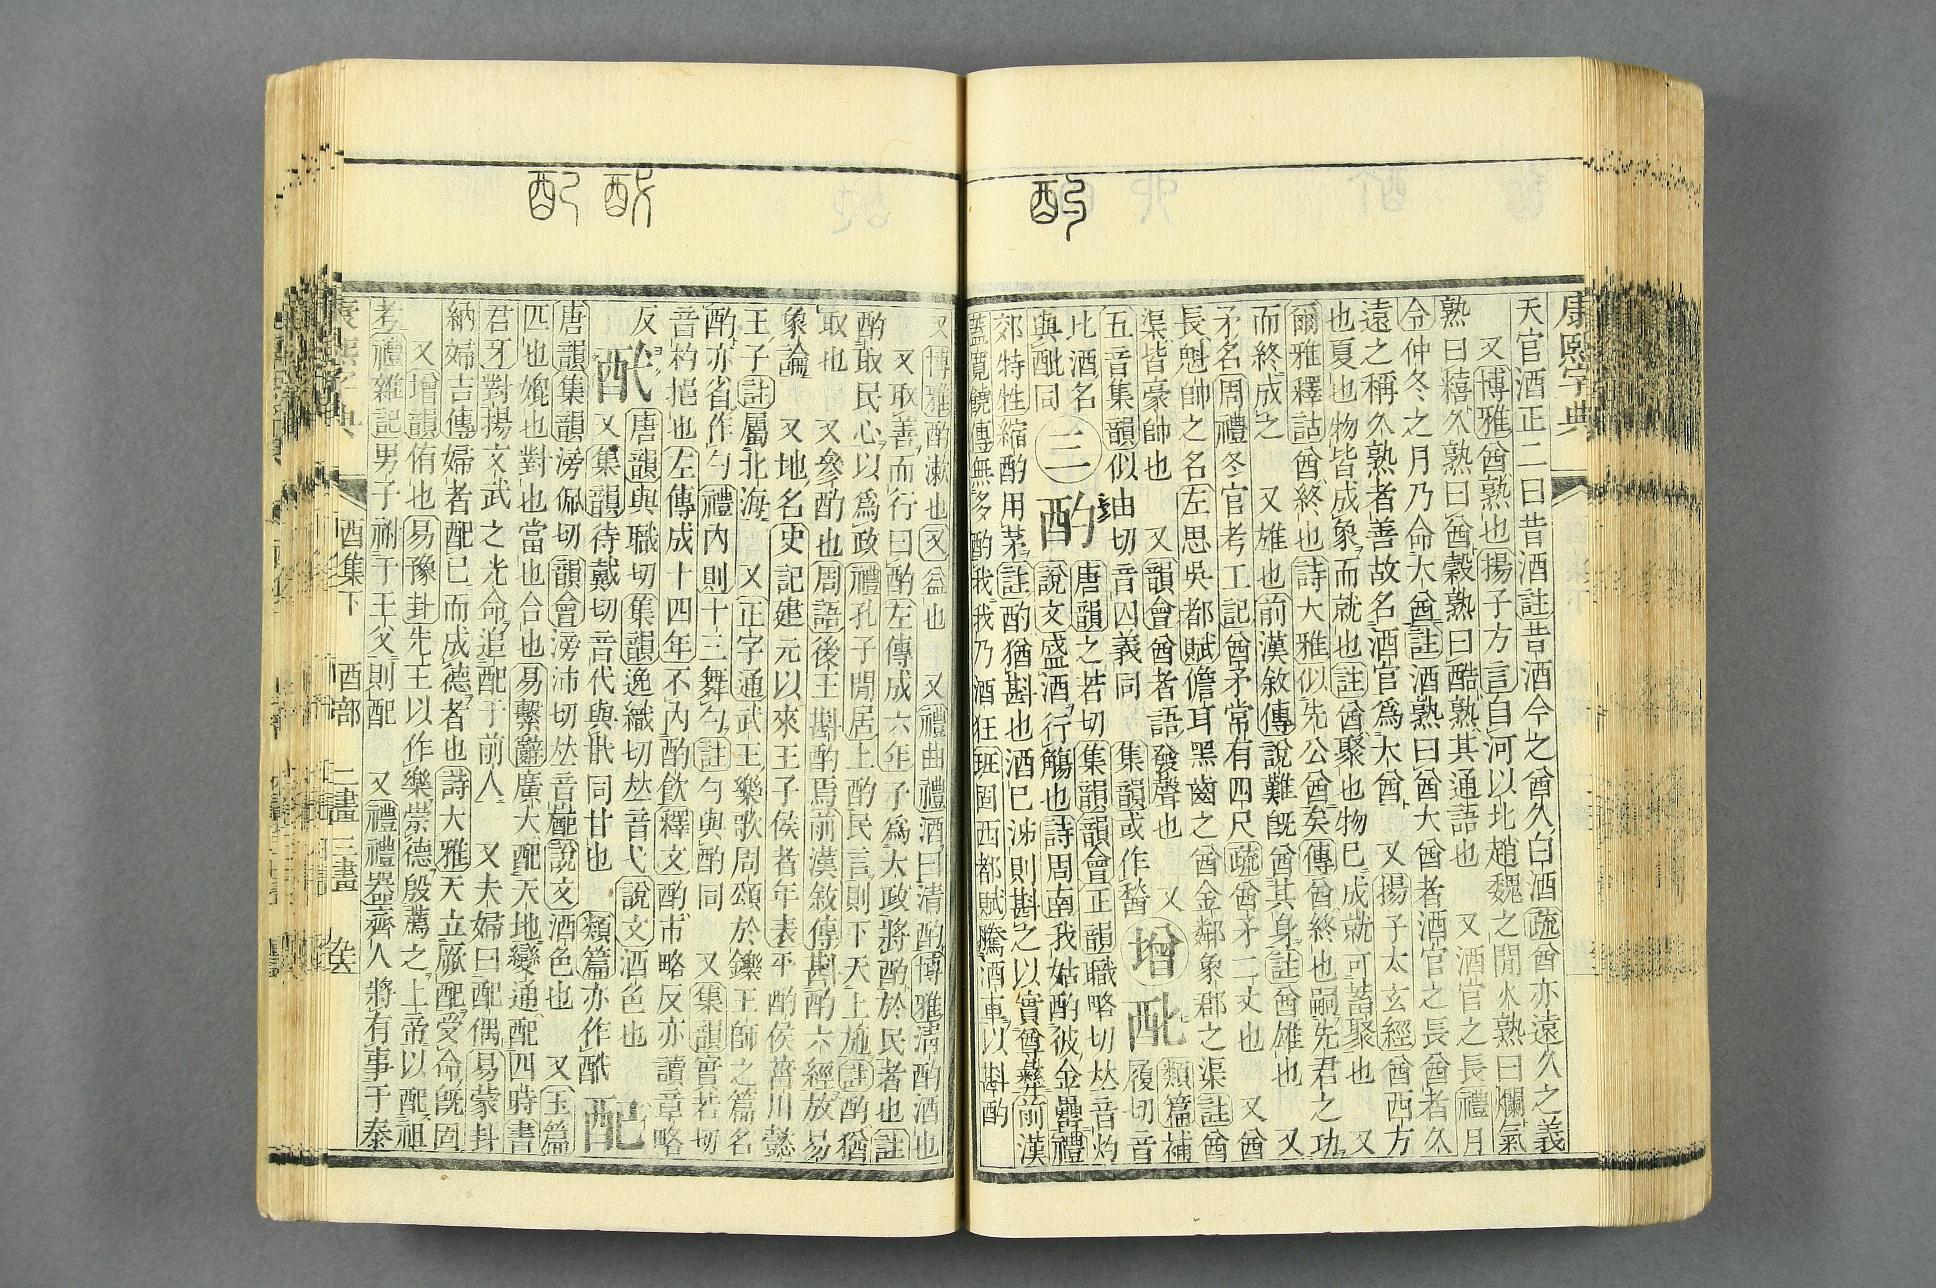 康熙字典
天官酒正二曰昔酒註昔酒今之酋久白酒疏酋亦遠久之義
又博雅酋熟也揚子方言自河以北趙魏之閒火熟曰爛氣
熟曰糦久熟曰酋穀熟曰酷熟其通語也 又酒官之長禮月
令仲冬之月乃命大酋註酒熟曰酋大酋者酒官之長酋者久
遠之稱久熟者善故名酒官爲大酋 又揚子太玄經酋西方
也夏也物皆成象而就也註酋聚也物已成就可蓄聚也 又
爾雅釋詁酋終也詩大雅似先公酋矣傳酋終也嗣先君之功
而終成之 又雄也前漢敘傳說難旣酋其身註酋雄也 又
矛名周禮冬官考工記酋矛常有四尺疏酋矛二丈也 又酋
長魁帥之名左思吳都賦儋耳黑齒之酋金鄰象郡之渠註酋
渠皆豪帥也 又韻會酋者語發聲也 又
五音集韻似由切音囚義同 集韻或作
增 類篇補
履切音
比酒名
與 同
三
酌 唐韻之若切集韻韻會正韻職略切𠀤音灼
說文盛酒行觴也詩周南我姑酌彼金罍禮
郊特牲縮酌用茅註酌猶斟也酒已泲則斟之以實尊彝前漢
蓋寬饒傳無多酌我我乃酒狂班固西都賦騰酒車以斟酌
又博雅酌漱也又益也 又禮曲禮酒曰清酌博雅清酌酒也
又取善而行曰酌左傳成六年子爲大政將酌於民者也註
酌取民心以爲政禮孔子閒居上酌民言則下天上施註酌猶
取也 又參酌也周語後王斟酌焉前漢敘傳斟酌六經放易
象論 又地名史記建元以來王子侯者年表平酌侯菑川懿
王子註屬北海 又正字通武王樂歌周頌於鑠王師之篇名
酌亦省作勺禮內則十三舞勺註勺與酌同 又集韻實若切
音杓挹也左傳成十四年不內酌飲釋文酌市略反亦讀章略
反
酖 唐韻與職切集韻逸織切𠀤音弋說文酒色也
又集韻待戴切音代與䣧同甘也 類篇亦作
配
唐韻集韻滂佩切韻會滂沛切𠀤音說文酒色也 又玉篇
匹也媲也對也當也合也易繫辭廣大配天地變通配四時書
君牙對揚文武之光命追配于前人 又夫婦曰配偶易蒙卦
納婦吉傳婦者配已而成德者也詩大雅天立厥配受命旣固
又增韻侑也易豫卦先王以作樂崇德殷薦之上帝以配祖
考禮雜記男子祔于王父則配 又禮禮器齊人將有事于泰
康熙字典
酉集下
酉部
二畫三畫